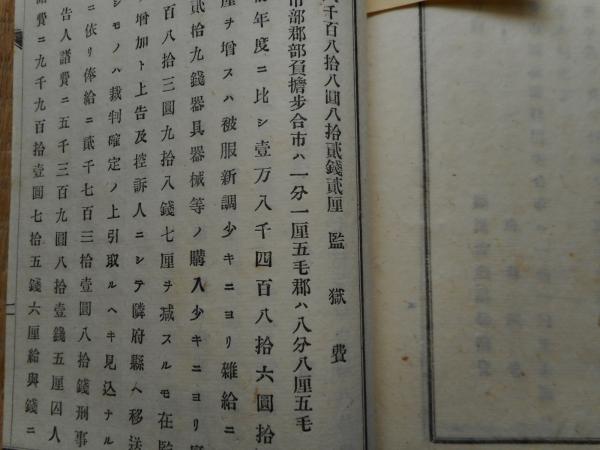 千百八拾八圓八拾貳錢貳厘 監獄費
市部郡部負擔步合市ハ一分一厘五毛郡ハ八分八厘五毛
年度ニ比シ壹万八千四百八拾六圓拾
厘ヲ增スハ被服新調少キニヨリ雜給ニ
貳拾九錢器具器械等ノ購入少キニヨリ
百八拾三圓九拾八錢七厘ヲ減スルモ在監
增加ト上告及控訴人ニシテ隣府縣ヘ移送
シモノハ裁判確定ノ上引取ルヘキ見込ナル
ニ依リ俸給ニ貳千七百三拾壹圓八拾錢刑事
告人諸費ニ五千三百九圓八拾壹錢五厘囚人
諸費ニ九千九百拾壹圓七拾五錢六厘給與錢ニ